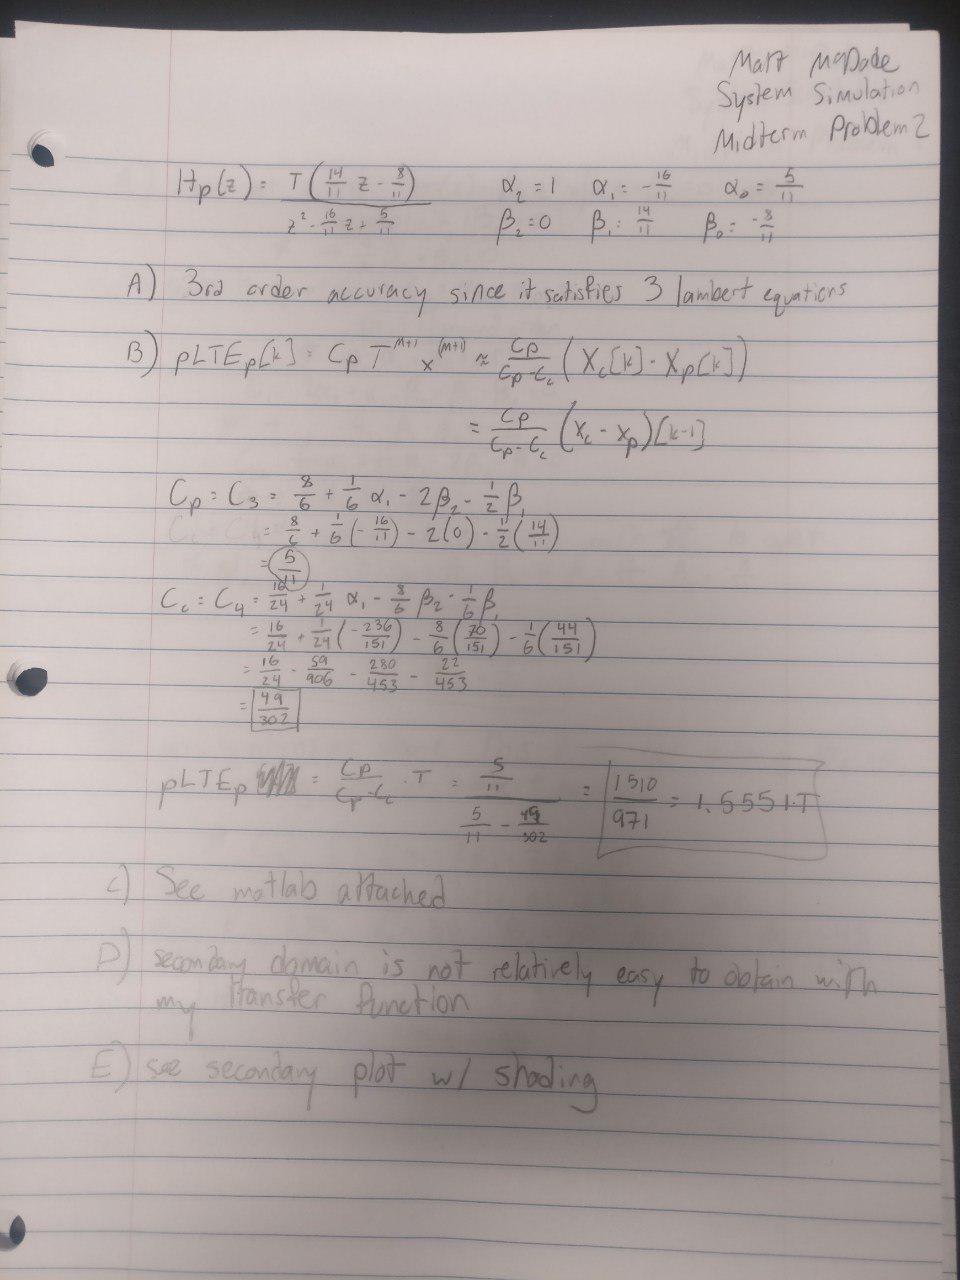 Matt McDade
System Simulation
Midterm Problem 2
Hp(z) = T(14/11 z - 8/11) / (z² - 16/11 z + 5/11)   α₂ = 1   α₁ = -16/11   α₀ = 5/11
β₂ = 0   β₁ = 14/11   β₀ = -8/11
A) 3rd order accuracy since it satisfies 3 lambert equations
B) pLTEp[k] = Cp T^(M+1) x^(M+1) ≈ Cp/(Cp-Cc) (Xc[k] - Xp[k])
= Cp/(Cp-Cc) (Xc - Xp)[k-1]
Cp = C₃ = 8/6 + 1/6 α₁ - 2β₂ - 1/2 β₁
= 8/6 + 1/6 (-16/11) - 2(0) - 1/2 (14/11)
= 5/11
Cc = C₄ = 16/24 + 1/24 α₁ - 8/6 β₂ - 1/6 β₁
= 16/24 + 1/24 (-236/151) - 8/6 (70/151) - 1/6 (44/151)
= 16/24 - 59/906 - 280/453 - 22/453
= 49/302
pLTEp = Cp/(Cp-Cc) · T = (5/11) / (5/11 - 49/302) = 1510/971 = 1.5551·T
C) See matlab attached
D) secondary domain is not relatively easy to obtain with
my transfer function
E) see secondary plot w/ shading